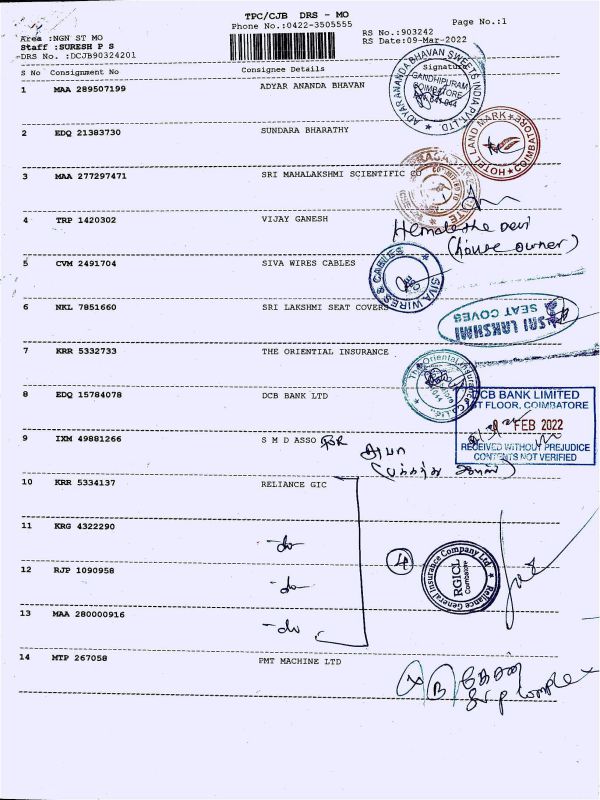 TPC/CJB DRS - MO
Phone No.:0422-3505555
Page No.:1
Area :NGN ST MO
RS No.:903242
Staff :SURESH P S
RS Date:09-Mar-2022
DRS No. :DCJB90324201
S No Consignment No Consignee Details Signature
1 MAA 289507199 ADYAR ANANDA BHAVAN
ADYAR ANANDA BHAVAN SWEETS INDIA PVT. LTD.
GANDHIPURAM
COIMBATORE
641 044
2 EDQ 21383730 SUNDARA BHARATHY
HOTEL LAND MARK COIMBATORE
3 MAA 277297471 SRI MAHALAKSHMI SCIENTIFIC CO
4 TRP 1420302 VIJAY GANESH
Devi
(house owner)
5 CVM 2491704 SIVA WIRES CABLES
SIVA WIRES & CABLES
6 NKL 7851660 SRI LAKSHMI SEAT COVERS
SRI LAKSHMI
SEAT COVES
7 KRR 5332733 THE ORIENTIAL INSURANCE
The Oriental Insurance Co. Ltd.
8 EDQ 15784078 DCB BANK LTD
DCB BANK LIMITED
FLOOR, COIMBATORE
FEB 2022
RECEIVED WITHOUT PREJUDICE
CONTENTS NOT VERIFIED
9 IXM 49881266 S M D ASSO
10 KRR 5334137 RELIANCE GIC
11 KRG 4322290 -do
4
Reliance General Insurance Company Ltd.
RGICL
Coimbatore
12 RJP 1090958 -do
13 MAA 280000916 -do
14 MTP 267058 PMT MACHINE LTD